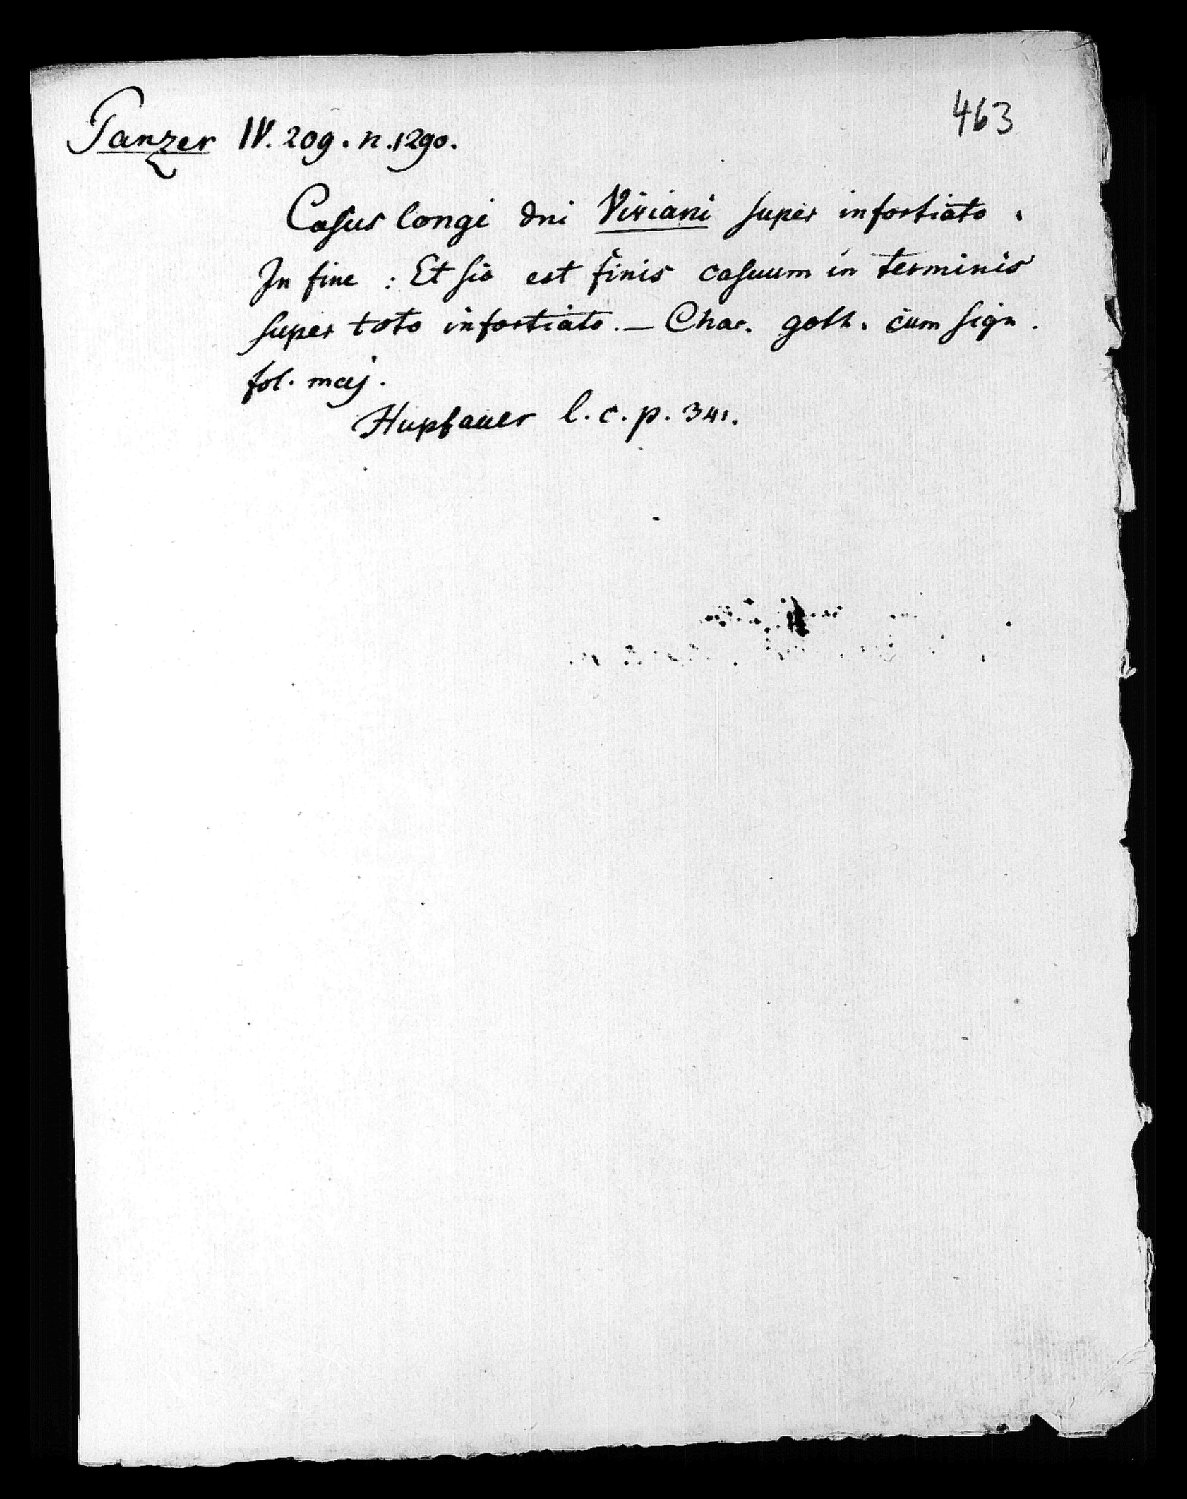 463
Panzer IV. 209. n. 1290.
Casus longi dni Viviani super infortiato.
In fine : Et sic est finis casuum in terminis
super toto infortiato. — Char. goth. cum sign.
fol. maj.
Hupfauer l. c. p. 341.